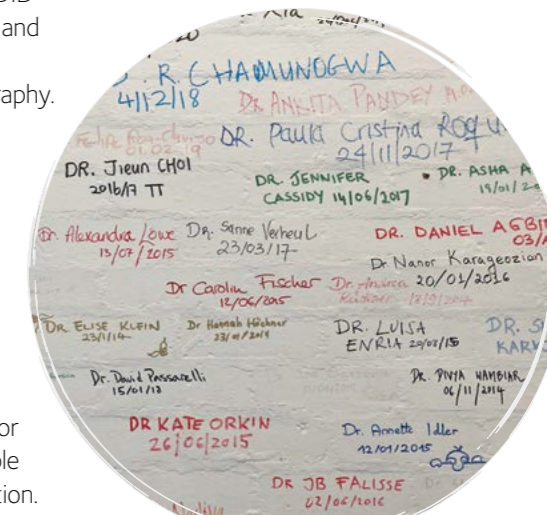 and
raphy.
R. CHAMUNOGWA
4/12/18
DR ANKITA PANDEY
DR. Paula Cristina
24/11/2017
01.02.19
DR. Jieun CHOI
2016/7 TT
DR. JENNIFER
CASSIDY 14/06/2017
DR. ASHA A
19/01/
Dr. Alexandra Lowe
13/07/2015
DR. Sanne Verheul
23/03/17
DR. DANIEL AGBI
03/
Dr Nanor Karageozian
20/01/2016
Dr Carolin Fischer
12/06/2015
DR ELISE KLEIN
23/1/14
Dr Hannah
DR. LUISA
ENRIA 20/03/15
DR. S
KARK
Dr. David Passarelli
15/01/13
DR. DIVYA NAMBIAR
06/11/2014
DR KATE ORKIN
26/06/2015
Dr. Annette Idler
12/01/2015
DR JB FALISSE
02/06/2016
or
ble
tion.